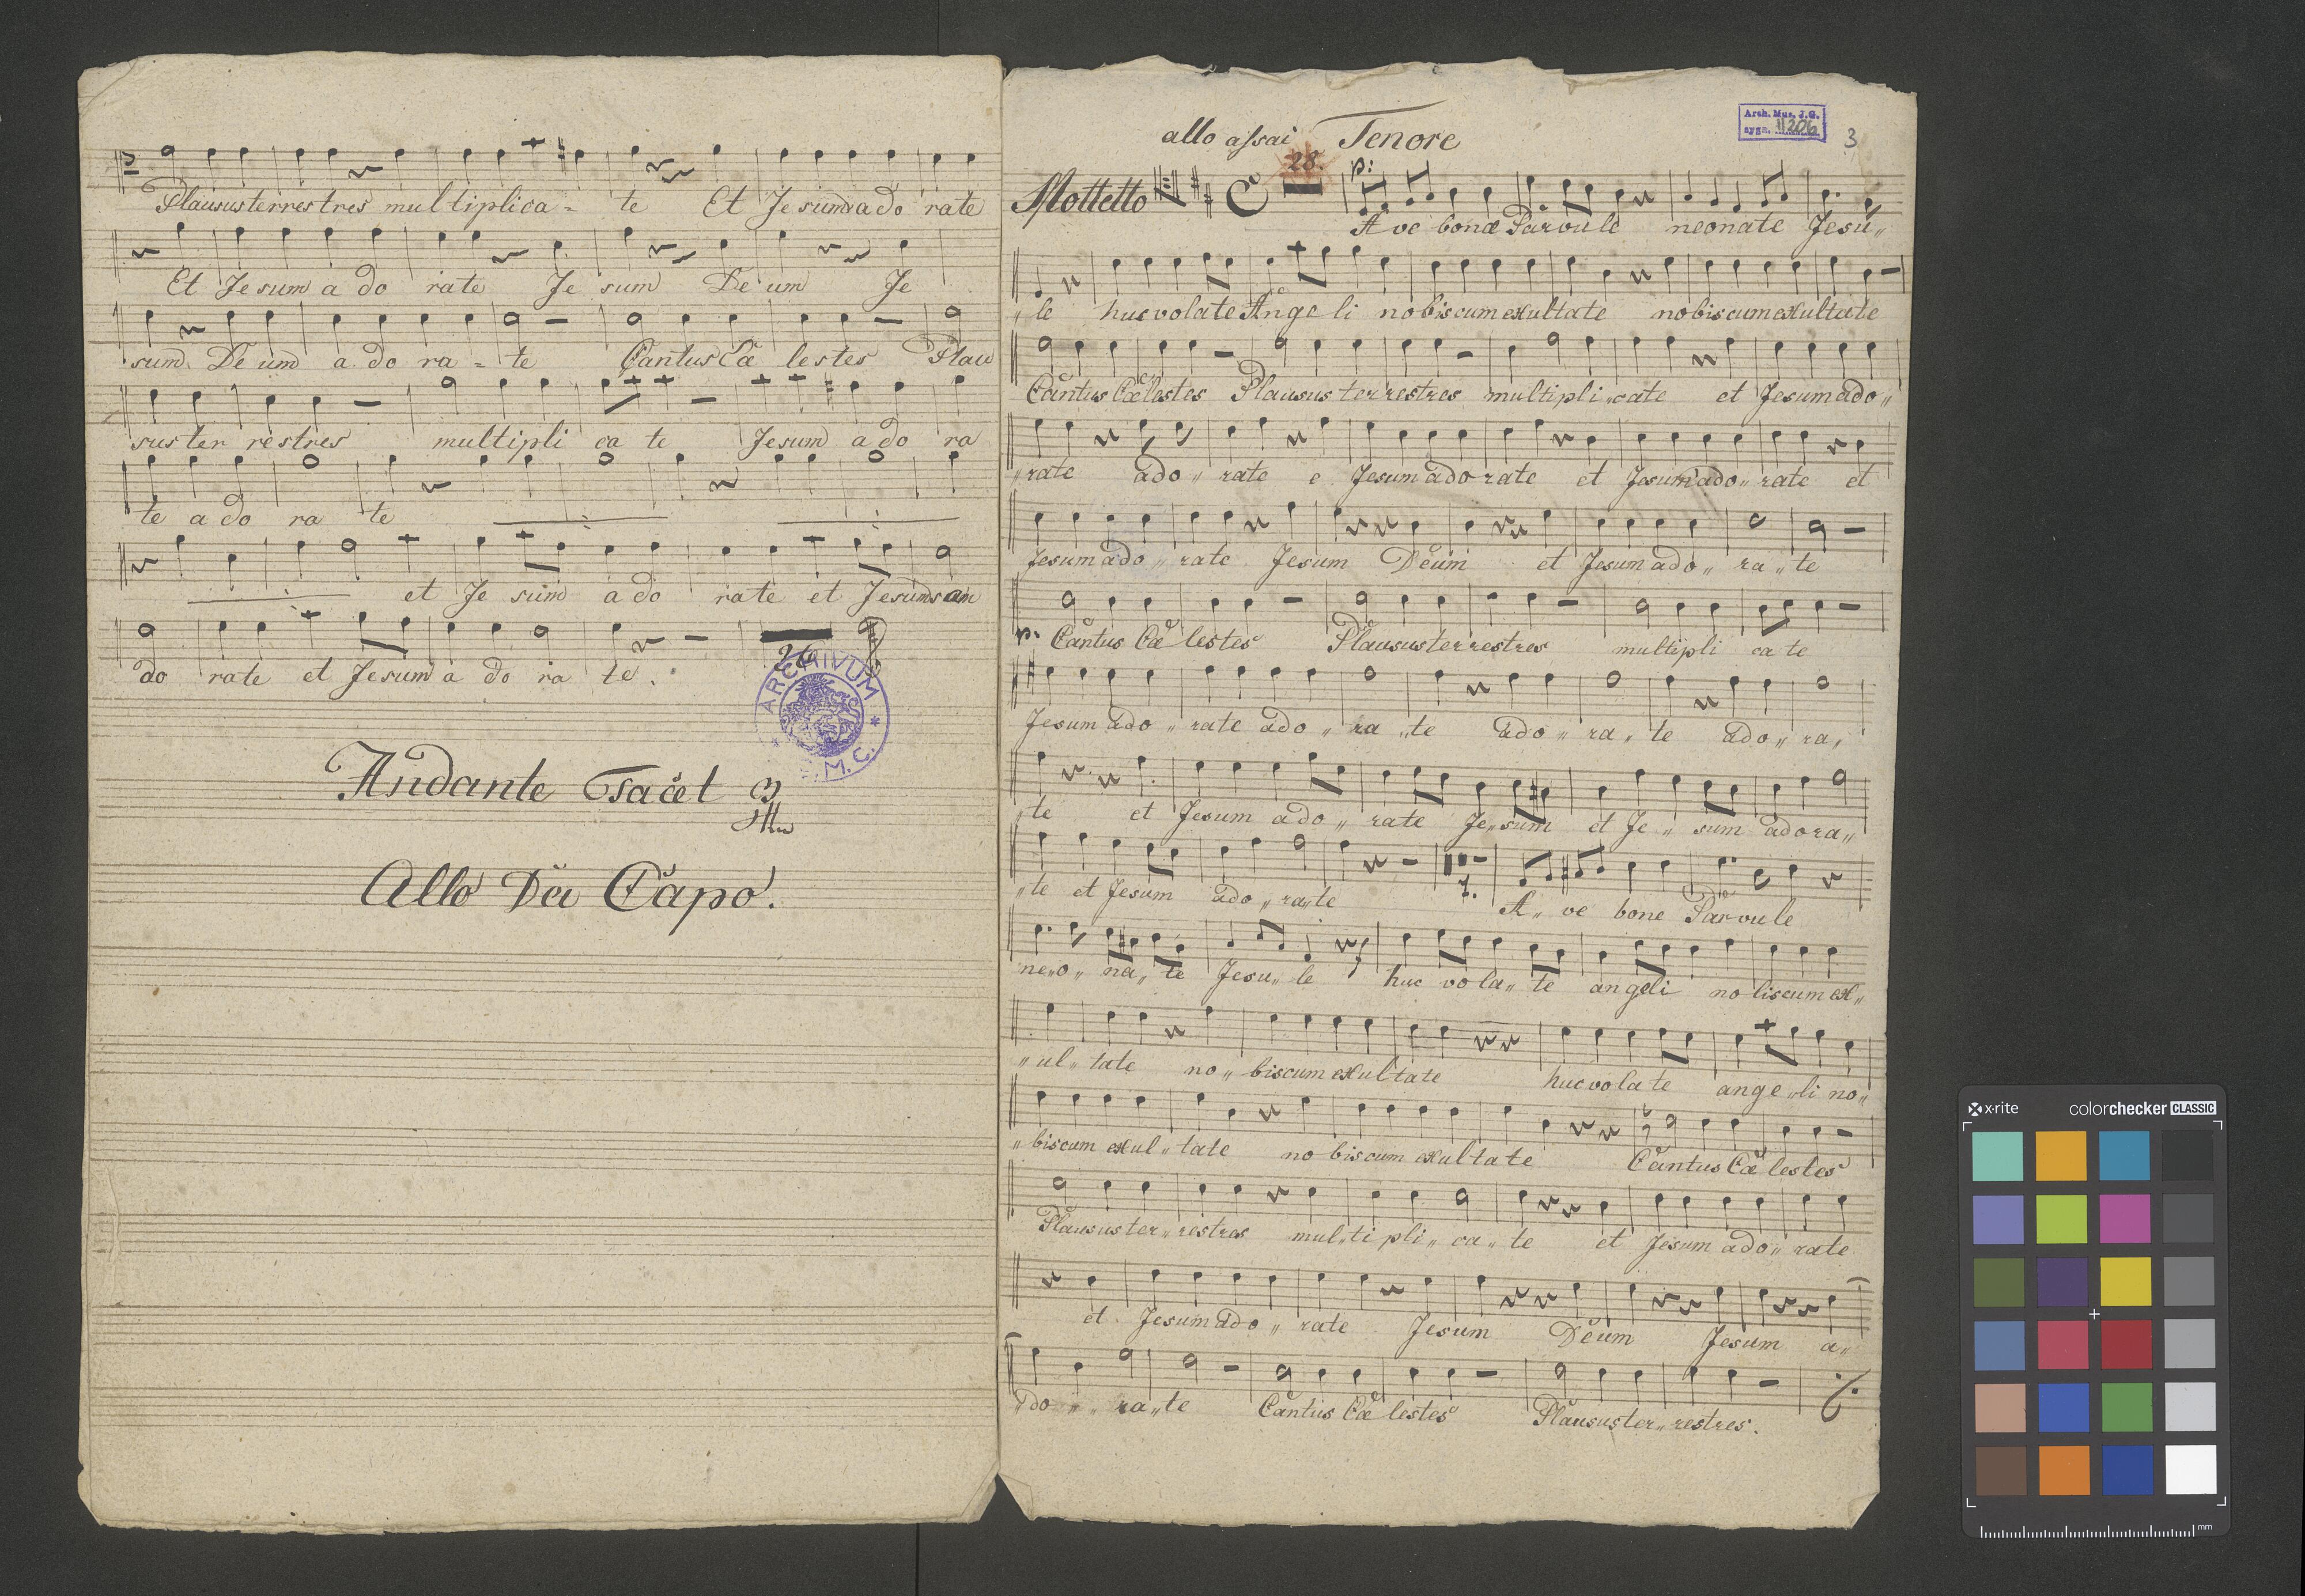 Plausus terrestres multiplica = te Et Jesum ado rate
Et Jesum a do rate Je sum De um Je
sum De um a do ra = te Cantus Cæ lestes Plau
sus ter restres multipli ca te Jesum a do ra
te a do ra te
et Je sum a do rate et Jesum
do rate et Jesum a do ra te.
26
ARCHIVUM
M.C.
Andante Tacet
Allo Da Capo.
allo assai Tenore
Arch. Mus. J.G.
sygn. II 206
3
28.
p:
Mottetto
A ve bonæ Parvule neonate Jesu„
„le huc volate Ange li nobiscum exultate nobiscum exultate
Cantus Cælestes Plausus terrestres multipli„cate et Jesum ado„
„rate ado„ rate e Jesum ado rate et Jesum ado„ rate et
Jesum ado„ rate Jesum Deum et Jesum ado„ ra„te
p. Cantus Cæ lestes Plausus terrestres multipli ca te
Jesum ado„ rate ado„ ra„te ado„ ra„ te ado„ ra„
„te et Jesum ado„ rate Je„sum et Je„ sum adora„
„te et Jesum ado„ ra„te 7. A„ ve bone Parvule
ne„o„ na„ te Jesu„ le huc vo la„ te angeli no biscum ex„
„ul„ tate no„ biscum exultate huc vola te ange„li no„
„biscum exul„ tate no biscum exultate Cantus Cæ lestes
Plausus ter„ restres mul„ti pli„ ca„ te et Jesum ado„ rate
et Jesum ado„ rate Jesum Deum Jesum a„
„do„ „ ra„te Cantus Cæ lestes Plausus ter„ restres.
x·rite colorchecker CLASSIC
mm